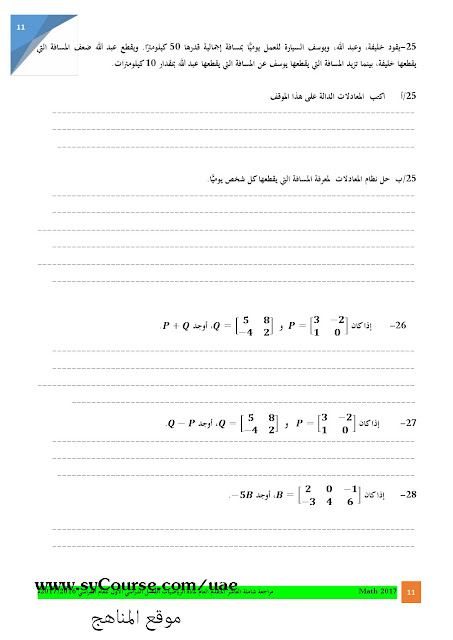 11
25-يقود خليفة، وعبد الله، ويوسف السيارة للعمل يوميًّا بمسافة إجمالية قدرها 50 كيلومترًا. ويقطع عبد الله ضعف المسافة التي
يقطعها خليفة، بينما تزيد المسافة التي يقطعها يوسف عن المسافة التي يقطعها عبد الله بمقدار 10 كيلومترات.
25/أ اكتب المعادلات الدالة على هذا الموقف
25/ب حل نظام المعادلات لمعرفة المسافة التي يقطعها كل شخص يوميًّا.
26- إذا كان P = [3 −2; 1 0] و Q = [5 8; −4 2]، أوجد P + Q.
27- إذا كان P = [3 −2; 1 0] و Q = [5 8; −4 2]، أوجد Q − P.
28- إذا كان B = [2 0 −1; −3 4 6]، أوجد −5B.
www.syCourse.com/uae
Math 2017 11
موقع المناهج